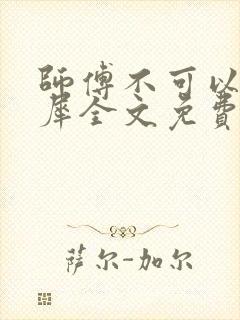 師傅不可以
犀全文免費
萨尔-加尔